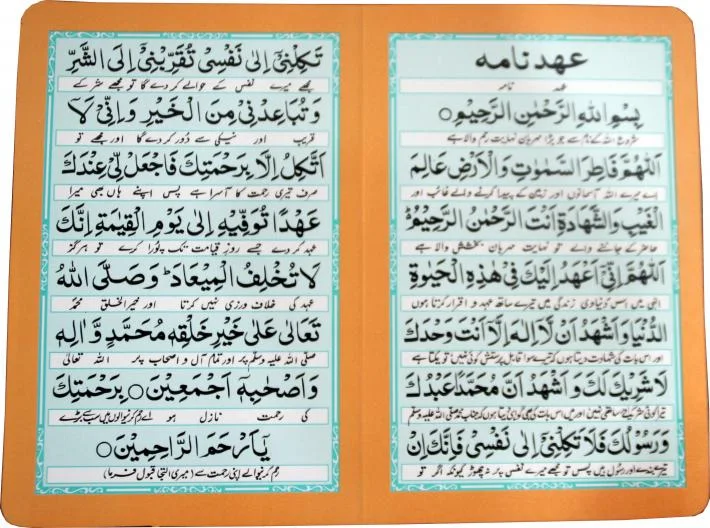 عهد نامه
عہد نامہ
بِسْمِ اللهِ الرَّحْمٰنِ الرَّحِيْمِ
شروع اللہ کے نام سے جو بڑا مہربان نہایت رحم والا ہے
اَللّٰهُمَّ فَاطِرَ السَّمٰوٰتِ وَالْاَرْضِ عَالِمَ
اے میرے اللہ آسمانوں اور زمین کے پیدا کرنے والے غائب اور
الْغَيْبِ وَالشَّهَادَةِ اَنْتَ الرَّحْمٰنُ الرَّحِيْمُ
حاضر کے جاننے والے تو نہایت مہربان بخشش والا ہے
اَللّٰهُمَّ اِنِّىْ اَعْهَدُ اِلَيْكَ فِىْ هٰذِهِ الْحَيٰوةِ
الٰہی میں اس دنیاوی زندگی میں تیرے ساتھ عہد و اقرار کرتا ہوں
الدُّنْيَا وَاَشْهَدُ اَنْ لَّا اِلٰهَ اِلَّا اَنْتَ وَحْدَكَ
اور اس بات کی شہادت دیتا ہوں کہ تیرے سوا قابل پرستش کوئی نہیں تو یکتا ہے
لَا شَرِيْكَ لَكَ وَ اَشْهَدُ اَنَّ مُحَمَّدًا عَبْدُكَ
تیرا کوئی شریک نہیں اور میں اس بات کی بھی گواہی دیتا ہوں کہ محمد صلی اللہ علیہ وسلم
وَرَسُوْلُكَ فَلَا تَكِلْنِىْ اِلٰى نَفْسِىْ فَاِنَّكَ اِنْ
تیرے بندے اور رسول ہیں پس تو مجھے میرے نفس پر نہ چھوڑ کیونکہ اگر تو
تَكِلْنِىْ اِلٰى نَفْسِىْ تُقَرِّبْنِىْ اِلَى الشَّرِّ
مجھے میرے نفس کے حوالے کر دے گا تو مجھے شر کے
وَتُبَاعِدْنِىْ مِنَ الْخَيْرِ وَاِنِّىْ لَا
قریب اور نیکی سے دور کر دے گا اور مجھے تو
اَتَّكِلُ اِلَّا بِرَحْمَتِكَ فَاجْعَلْ لِّىْ عِنْدَكَ
صرف تیری رحمت کا آسرا ہے پس اپنے ہاں بھی میرا
عَهْدًا تُوَفِّيْهِ اِلٰى يَوْمِ الْقِيٰمَةِ اِنَّكَ
عہد کر دے جسے روز قیامت تک پورا کرے تو ہرگز
لَا تُخْلِفُ الْمِيْعَادَ وَصَلَّى اللهُ
عہد کی خلاف ورزی نہیں کرتا اور خیر الخلق محمد
تَعَالٰى عَلٰى خَيْرِ خَلْقِهٖ مُحَمَّدٍ وَّاٰلِهٖ
صلی اللہ علیہ وسلم پر اور تمام آل و اصحاب پر اللہ تعالیٰ
وَاَصْحَابِهٖ اَجْمَعِيْنَ بِرَحْمَتِكَ
کی رحمت نازل ہو اے رحم کرنیوالوں میں سب سے بڑے
يَآ اَرْحَمَ الرَّاحِمِيْنَ
رحم کرنیوالے اپنی رحمت سے (میری التجا قبول فرما)